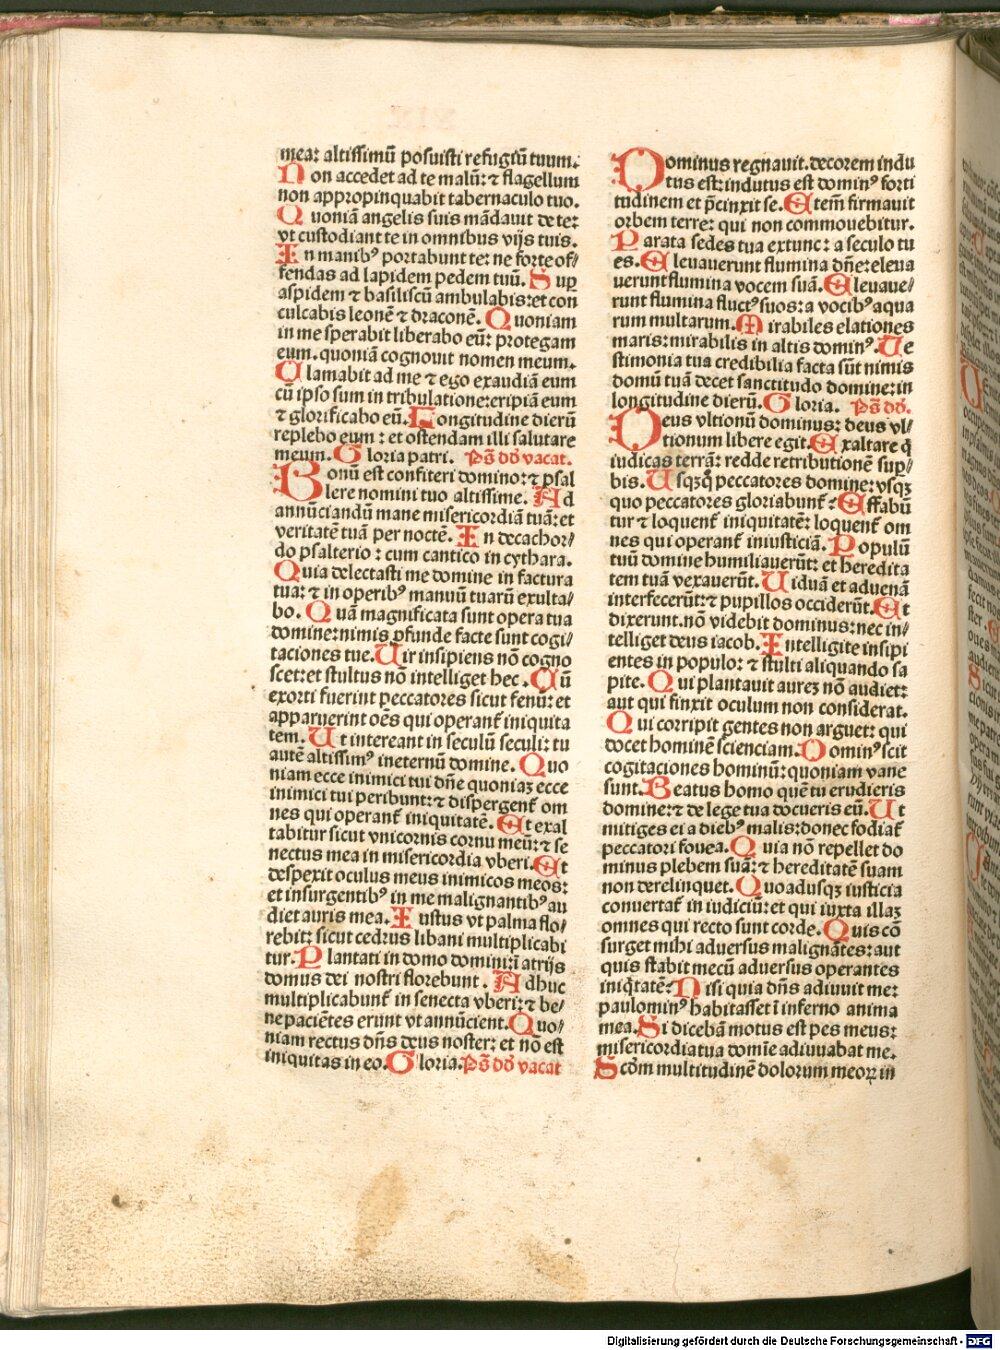 mea: altissimū posuisti refugiū tuum.
Non accedet ad te malū: ⁊ flagellum
non appropinquabit tabernaculo tuo.
Quoniā angelis suis mādauit de te:
vt custodiant te in omnibus vijs tuis.
In manibꝰ portabunt te: ne forte of/
fendas ad lapidem pedem tuū. Sup
aspidem ⁊ basiliscū ambulabis: et con
culcabis leonē ⁊ draconē. Quoniam
in me sperabit liberabo eū: protegam
eum. quoniā cognouit nomen meum.
Clamabit ad me ⁊ ego exaudiā eum
cū ipso sum in tribulatione: eripiā eum
⁊ glorificabo eū. Longitudine dierū
replebo eum : et ostendam illi salutare
meum. Gloria patri. Ps̄ dd̄ vacat.
Bonū est confiteri domino: ⁊ psal
lere nomini tuo altissime. Ad
annūciandū mane misericordiā tuā: et
veritatē tuā per noctē. In decachor/
do psalterio : cum cantico in cythara.
Quia delectasti me domine in factura
tua: ⁊ in operibꝰ manuū tuarū exulta/
bo. Quā magnificata sunt opera tua
domine: nimis ꝓfunde facte sunt cogi/
taciones tue. Uir insipiens nō cogno
scet: et stultus nō intelliget hec. Cū
exorti fuerint peccatores sicut fenū: et
apparuerint oēs qui operant̄ iniquita
tem. Ut intereant in seculū seculi: tu
autē altissimꝰ ineternū domine. Quo
niam ecce inimici tui dn̄e quoniaꝫ ecce
inimici tui peribunt: ⁊ dispergent̄ om
nes qui operant̄ iniquitatē. Et exal
tabitur sicut vnicornis cornu meū: ⁊ se
nectus mea in misericordia vberi. Et
despexit oculus meus inimicos meos:
et insurgentibꝰ in me malignantibꝰ au
diet auris mea. Iustus vt palma flo/
rebit: sicut cedrus libani multiplicabi
tur. Plantati in domo domini: ī atrijs
domus dei nostri florebunt . Adhuc
multiplicabunt̄ in senecta vberi: ⁊ be/
ne paciētes erunt vt annūcient. Quo/
niam rectus dn̄s deus noster: et nō est
iniquitas in eo. Gloria. Ps̄ dd̄ vacat
Dominus regnauit. decorem indu
tus est: indutus est dominꝰ forti
tudinem et p̄cinxit se. Etem̄ firmauit
orbem terre: qui non commouebitur.
Parata sedes tua extunc: a seculo tu
es. Eleuauerunt flumina dn̄e: eleua
uerunt flumina vocem suā. Eleuaue/
runt flumina fluctꝰ suos: a vocibꝰ aqua
rum multarum. Mirabiles elationes
maris: mirabilis in altis dominꝰ. Te
stimonia tua credibilia facta sūt nimis
domū tuā decet sanctitudo domine: in
longitudine dierū. Gloria. Ps̄ dd̄.
Deus vltionū dominus: deus vl/
tionum libere egit. Exaltare q̄
iudicas terrā: redde retributionē sup/
bis. Usqꝫqꝫ peccatores domine: vsqꝫ
quo peccatores gloriabunt̄: Effabū
tur ⁊ loquent̄ iniquitatē: loquent̄ om
nes qui operant̄ iniusticiā. Populū
tuū domine humiliauerūt: et heredita
tem tuā vexauerūt. Uiduā et aduenā
interfecerūt: ⁊ pupillos occiderūt. Et
dixerunt. nō videbit dominus: nec in/
telliget deus iacob. Intelligite insipi
entes in populo: ⁊ stulti aliquando sa
pite. Qui plantauit aureꝫ nō audiet:
aut qui finxit oculum non considerat.
Qui corripit gentes non arguet: qui
docet hominē scienciam. Dominꝰ scit
cogitaciones hominū: quoniam vane
sunt. Beatus homo quē tu erudieris
domine: ⁊ de lege tua docueris eū. Ut
mitiges ei a diebꝰ malis: donec fodiat̄
peccatori fouea. Quia nō repellet do
minus plebem suā: ⁊ hereditatē suam
non derelinquet. Quoadusqꝫ iusticia
conuertat̄ in iudiciū: et qui iuxta illaꝫ
omnes qui recto sunt corde. Quis cō
surget mihi aduersus malignātes: aut
quis stabit mecū aduersus operantes
iniq̄tatē? Nisi quia dn̄s adiuuit me:
paulominꝰ habitasset ī inferno anima
mea. Si dicebā motus est pes meus:
misericordia tua domīe adiuuabat me.
Scd̄m multitudinē dolorum meoꝝ in
Digitalisierung gefördert durch die Deutsche Forschungsgemeinschaft - DFG